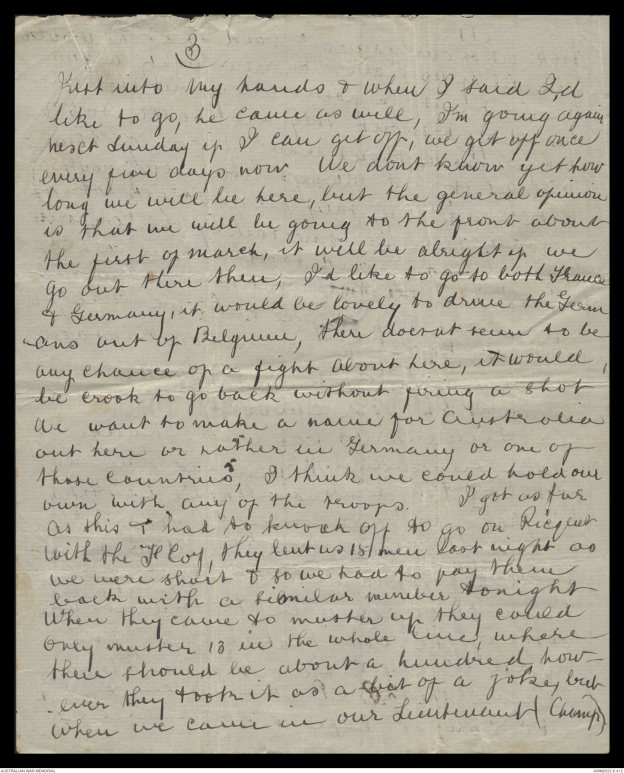 3
into my hands & when I said I,d
like to go, he came as well, I'm going again
next Sunday if I can get off, we get off once
every five days now. We dont know yet how
long we will be here, but the general opinion
is that we will be going to the front about
the first of march, it will be alright if we
go out there then, I'd like to go to both France
& Germany, it would be lovely to drive the Germ
ans out of Belgium, there doesnt seem to be
any chance of a fight about here, it would
be crook to go back without firing a shot
We want to make a name for Australia
out here or rather in Germany or one of
those countries, I think we could hold our
own with any of the troops. I got as far
as this & had to knock off to go on Picquet
with the H Coy, they lent us 13 men last night as
we were short & so we had to pay them
back with a similar number tonight
When they came to muster up they could
only muster 13 in the whole line, where
there should be about a hundred how-
ever they took it as a bit of a joke, but
when we came in our Lieutenant (Champ)
AUSTRALIAN WAR MEMORIAL